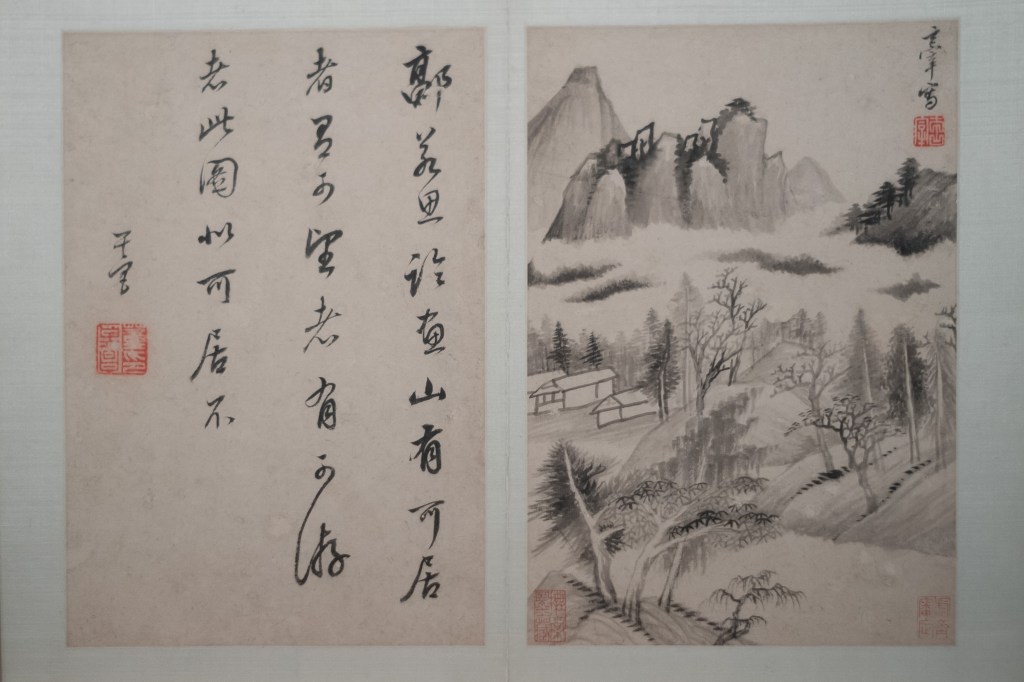 玄宰寫
玄宰
郭若思論畫山有可居
者有可望者有可游
者此圖似可居不
玄宰